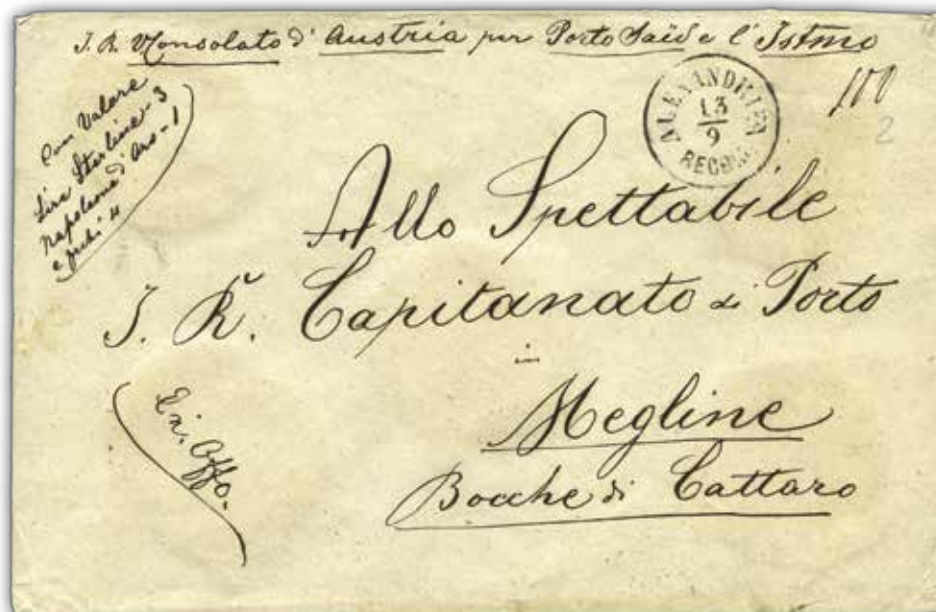 I. R. Consolato d'Austria per Porto Saïd e l'Istmo
Con Valore
Lire Sterline 3
Napoleoni d'Oro - 1
e 4
ALEXANDRIEN
13
9
RECOM
100
2
Allo Spettabile
I. R. Capitanato di Porto
in
Megline
Bocche di Cattaro
Ex. Offo.